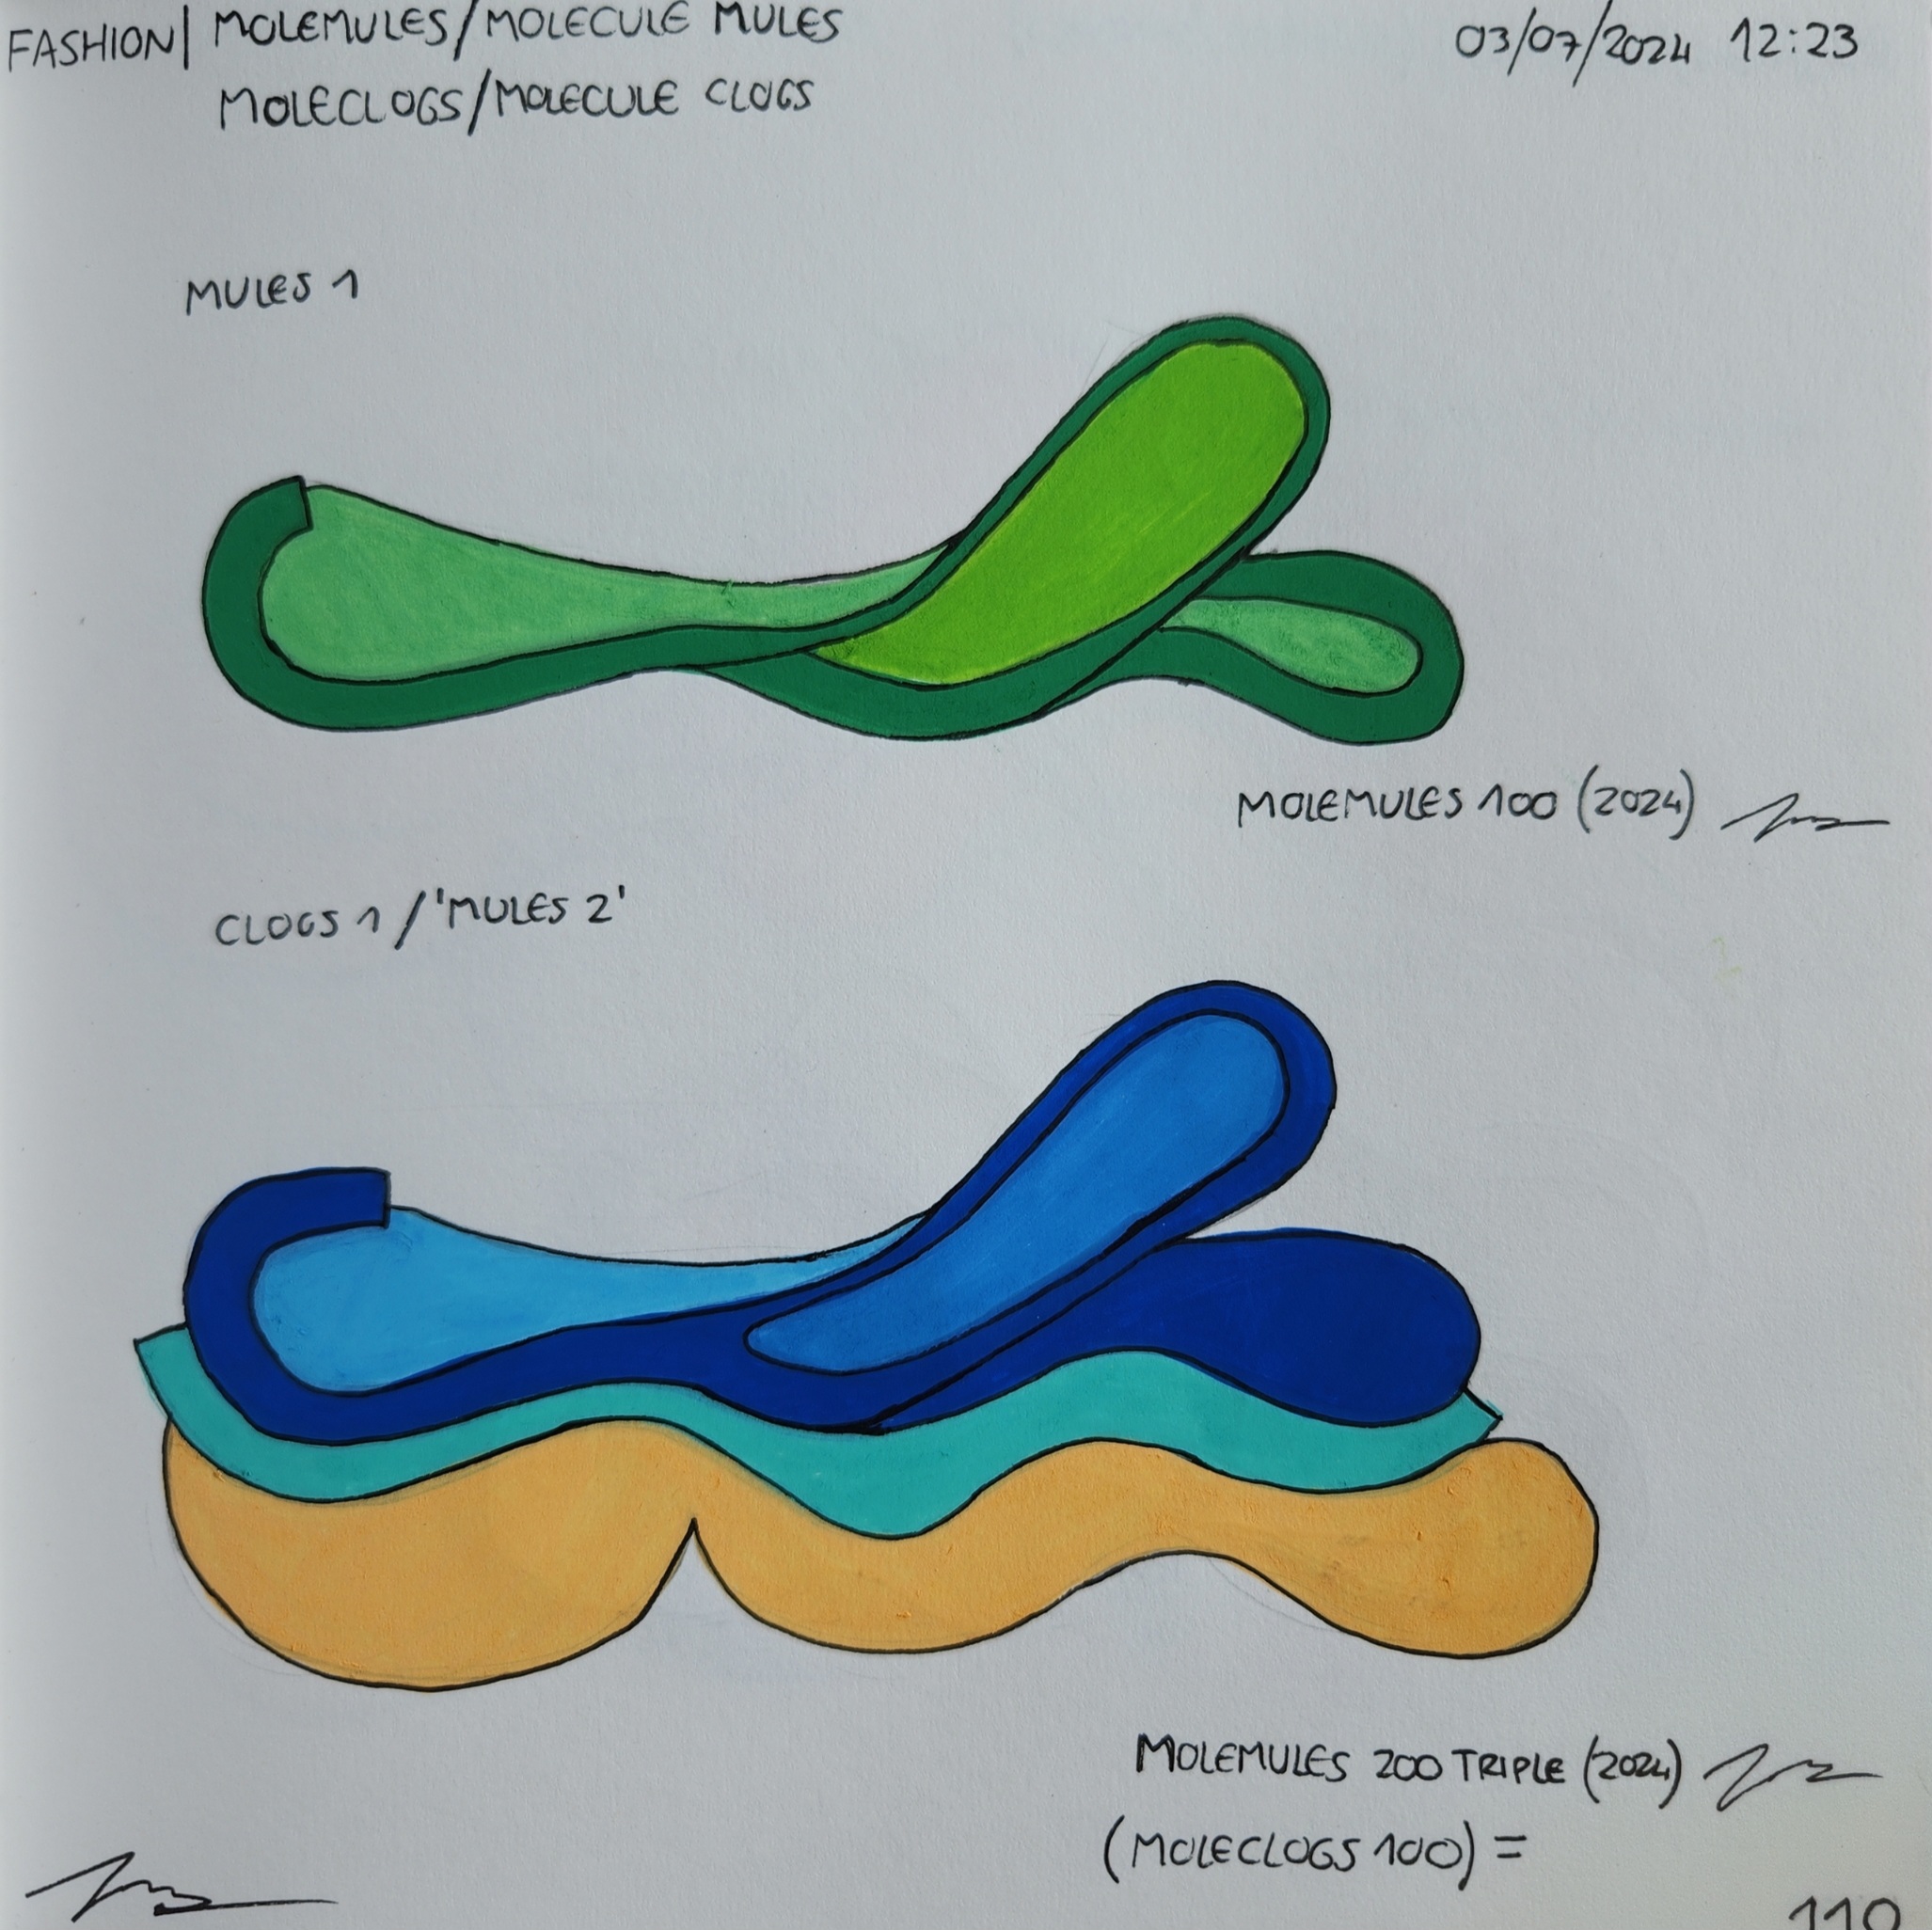 FASHION| MOLEMULES/MOLECULE MULES
MOLECLOGS/MOLECULE CLOGS
03/07/2024 12:23
MULES 1
MOLEMULES 100 (2024)
CLOGS 1/'MULES 2'
MOLEMULES 200 TRIPLE (2024)
(MOLECLOGS 100) =
110